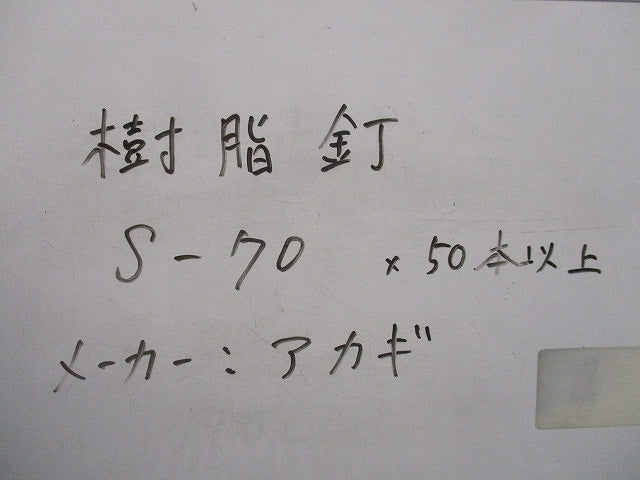 樹脂釘
S-70 ×50本以上
メーカー:アカギ